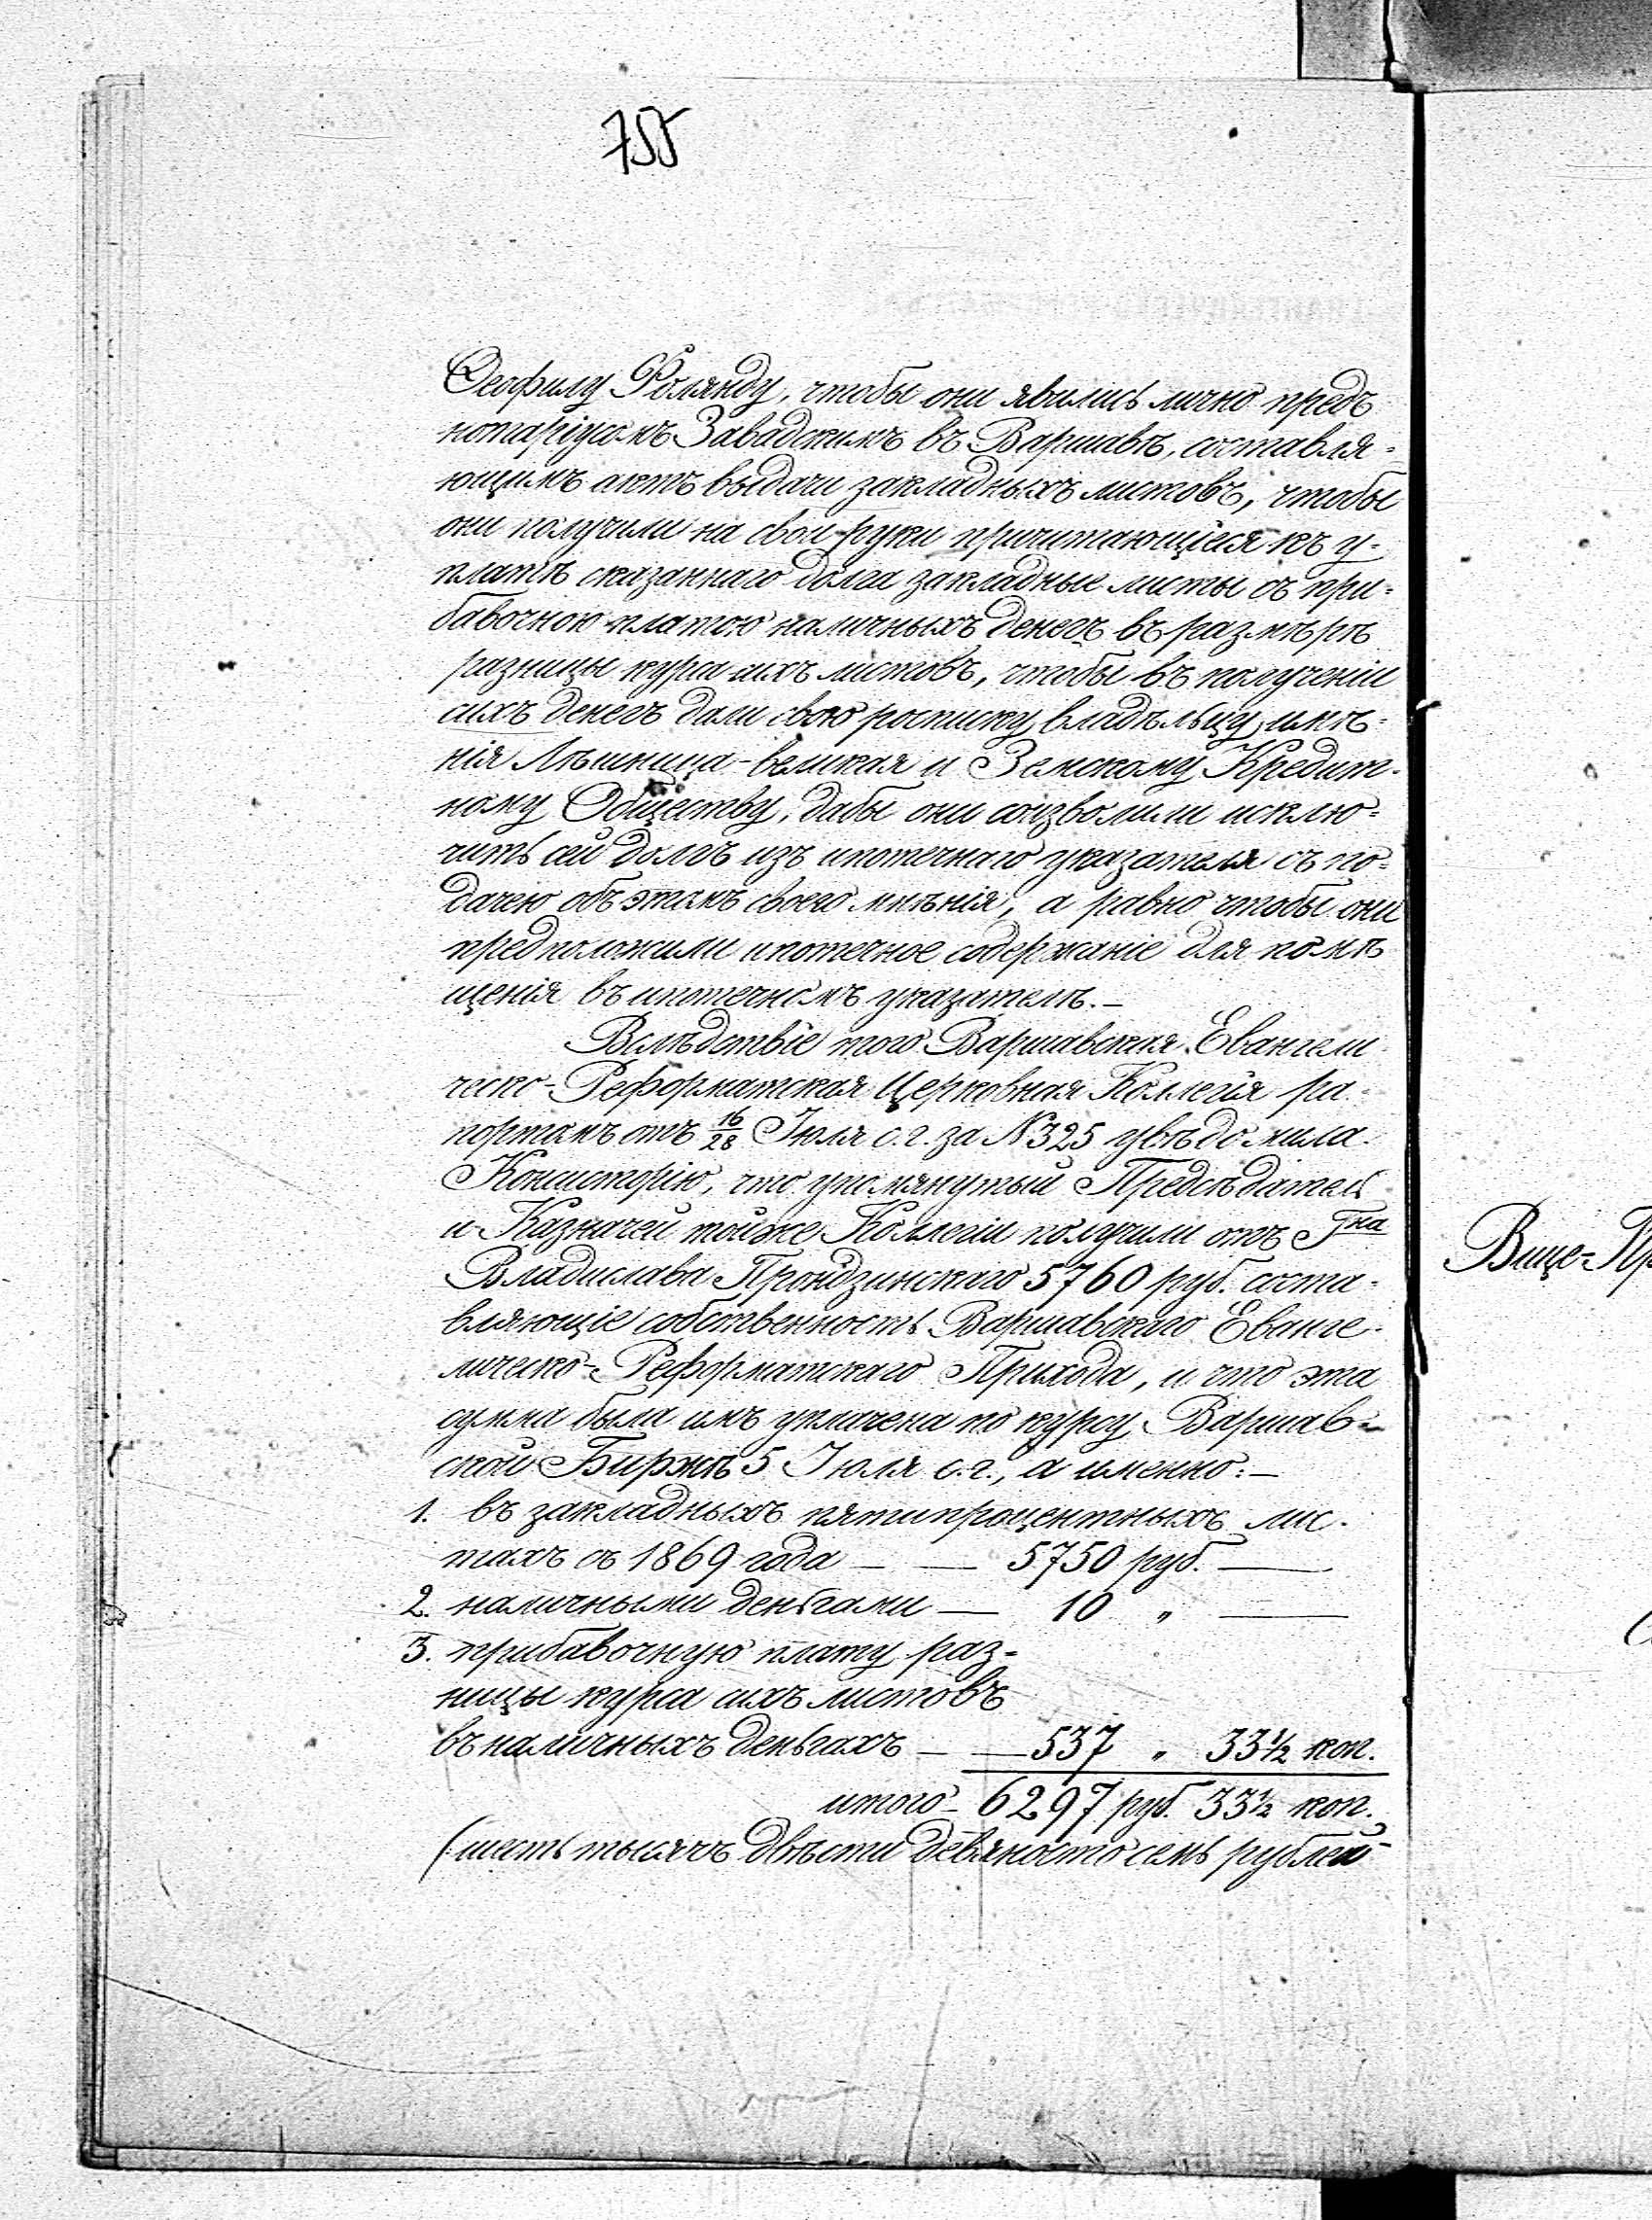 755
Ѳеофилу Роланду, чтобы они явились лично предъ
нотаріусомъ Завадскимъ въ Варшавѣ, составля=
ющимъ актъ выдачи закладныхъ листовъ, чтобы
они получили на свои руки причитающіеся къ у=
платѣ сказаннаго долга закладные листы съ при=
бавочною платою наличныхъ денегъ въ размѣрѣ
разницы курса сихъ листовъ, чтобы въ полученіи
сихъ денегъ дали свою росписку владѣльцу имѣ=
нія Лѣшница-великая и Земскому Кредит-
ному Обществу, дабы они соизволили исклю=
чить сей долгъ изъ ипотечнаго указателя съ по=
дачею объ этомъ своего мнѣнія, а равно чтобы они
предположили ипотечное содержаніе для помѣ
щенія въ ипотечномъ указателѣ.—
Вслѣдствіе того Варшавская Евангели
ческо-Реформатская Церковная Коллегія ра-
портомъ отъ 16/28 Іюля с.г. за № 325 увѣдомила
Консисторію, что упомянутый Предсѣдатель
и Казначей тойже Коллегіи получили отъ Гна
Владислава Прондзинскаго 5760 руб. соста-
вляющіе собственность Варшавскаго Еванге-
лическо-Реформатскаго Прихода, и что эта
сумма была имъ уплачена по курсу Варшав=
ской Биржѣ 5 Іюля с.г., а именно:—
1. въ закладныхъ пятипроцентныхъ лис-
тахъ съ 1869 года — — 5750 руб. —
2. наличными деньгами — 10 „ —
3. прибавочную плату раз=
ницы курса сихъ листовъ
въ наличныхъ деньгахъ — — 537 „ 33½ коп.
итого — 6297 руб. 33½ коп.
(:шесть тысячъ двѣсти девяносто семь рублей
Вице=Пр